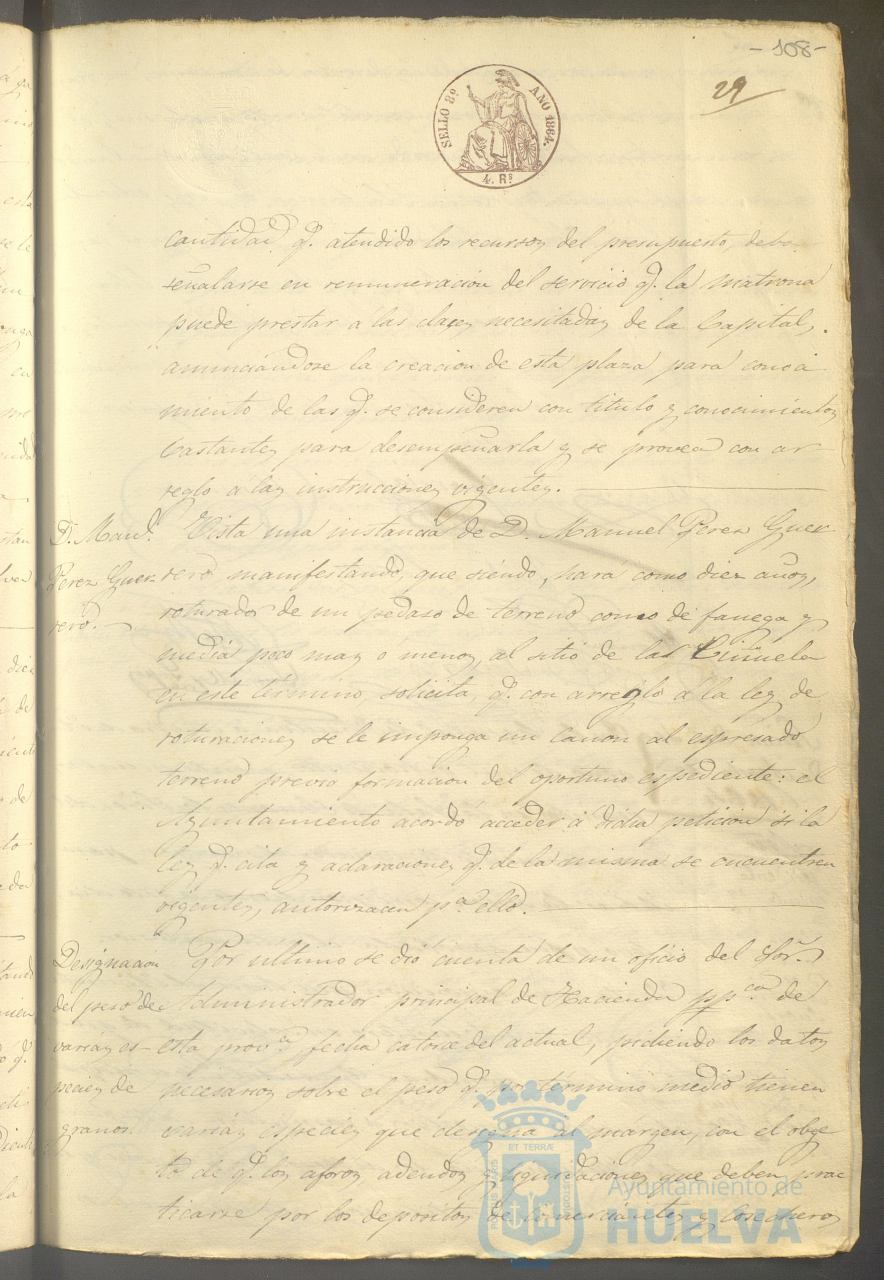 - 108 -
29
SELLO 8º AÑO 1864.
4. Rs
cantidad q. atendido los recursos del presupuesto, deba
señalarse en remuneracion del servicio q. la matrona
puede prestar a las clases necesitadas de la Capital,
anunciándose la creacion de esta plaza para conoci
miento de las q. se consideren con titulo y conocimientos
bastantes para desempeñarla y se provea con ar-
reglo a las instrucciones vigentes.
D. Manl.
Perez Guer
rero.
Vista una instancia de D. Manuel Perez Guer
rero manifestando, que siendo, hará como diez años,
roturador de un pedaso de terreno como de fanega y
media poco mas o menos, al sitio de las
en este término solicita, q. con arreglo a la ley de
roturaciones se le imponga un canon al espresado
terreno previo formacion del oportuno espediente: el
Ayuntamiento acordó acceder á dicha peticion si la
ley q. cita y aclaraciones q. de la misma se encuentren
vigentes, autorizacen pa. ello.
Designacion
del peso de
varias es-
pecies de
granos.
Por ultimo se dió cuenta de un oficio del Sor.
Administrador principal de Hacienda ppca. de
esta prova. fecha catorce del actual, pidiendo los datos
necesarios sobre el peso q. por término medio tienen
varias especies que designa al margen, con el obge
to de q. los aforos adeudos y liquidaciones que deben prac
ticarse por los depositos de comerciantes y cosecheros
PORTUS MARIS ET TERRÆ CUSTODIA
Ayuntamiento de
HUELVA